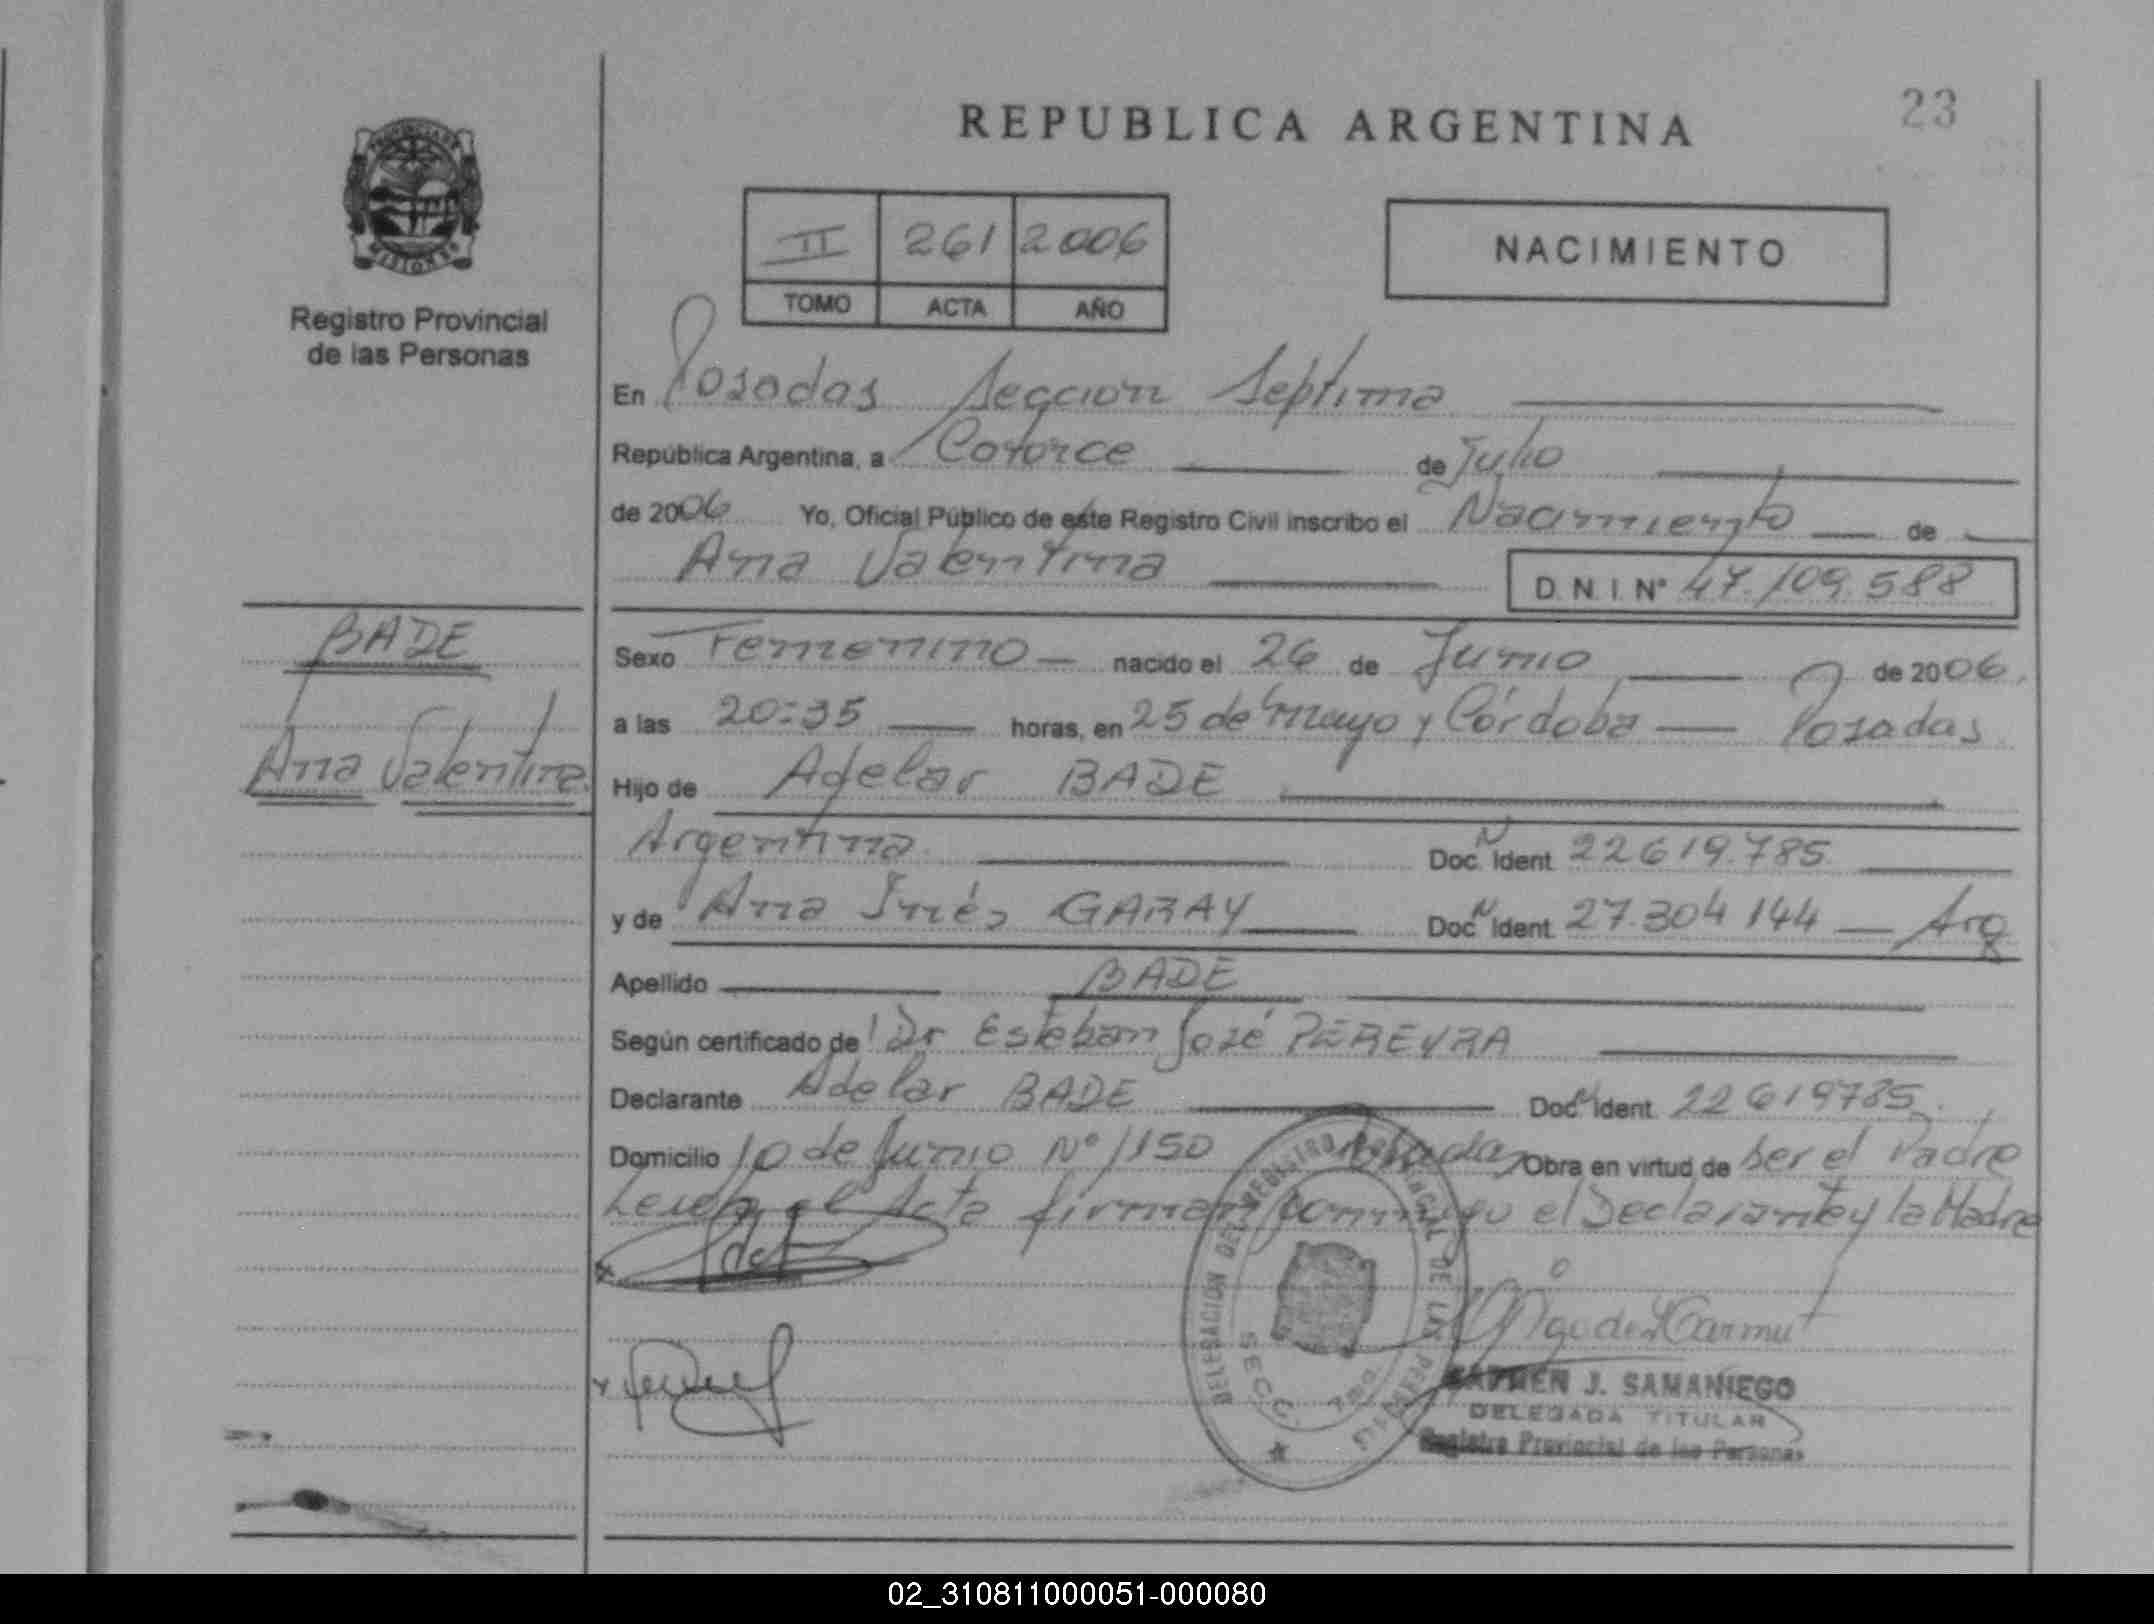 REPUBLICA ARGENTINA
23
PROVINCIA DE
MISIONES
Registro Provincial
de las Personas
II 261 2006
TOMO ACTA AÑO
NACIMIENTO
En Posadas Sección Séptima
República Argentina, a Catorce de Julio
de 2006 Yo, Oficial Público de este Registro Civil inscribo el Nacimiento de
Ana Valentina D.N.I. Nº 47.109.588
BADE
Ana Valentina
Sexo Femenino nacido el 26 de Junio de 2006
a las 20:35 horas, en 25 de Mayo y Córdoba Posadas
Hijo de Adelar BADE
Argentina Doc. N Ident. 22619.785
y de Ana Inés GARAY Doc. N Ident. 27.304 144 Arg
Apellido BADE
Según certificado de Dr Esteban José PEREYRA
Declarante Adelar BADE Doc. N Ident. 22619785
Domicilio 10 de Junio Nº 1150 Posadas Obra en virtud de ser el Padre
el Acta firman conmigo el Declarante y la Madre
DELEGACION DEL REGISTRO PROVINCIAL DE LAS PERSONAS
SECC.
CARMEN J. SAMANIEGO
DELEGADA TITULAR
Registro Provincial de las Personas
02_310811000051-000080